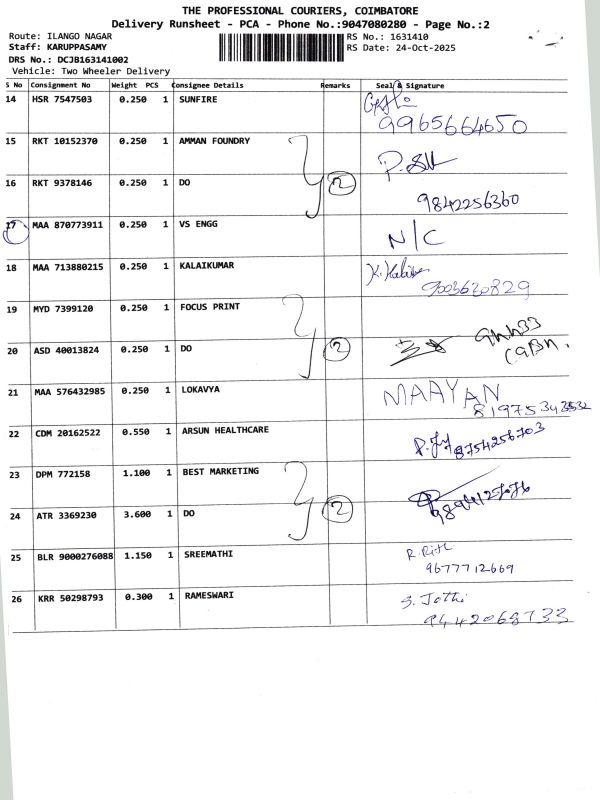 THE PROFESSIONAL COURIERS, COIMBATORE
Delivery Runsheet - PCA - Phone No.:9047080280 - Page No.:2
Route: ILANGO NAGAR RS No.: 1631410
Staff: KARUPPASAMY RS Date: 24-Oct-2025
DRS No.: DCJB163141002
Vehicle: Two Wheeler Delivery
S No Consignment No Weight PCS Consignee Details Remarks Seal & Signature
14 HSR 7547503 0.250 1 SUNFIRE
9965664650
15 RKT 10152370 0.250 1 AMMAN FOUNDRY
16 RKT 9378146 0.250 1 DO 2
9842256360
17 MAA 870773911 0.250 1 VS ENGG N/C
18 MAA 713880215 0.250 1 KALAIKUMAR
19 MYD 7399120 0.250 1 FOCUS PRINT
20 ASD 40013824 0.250 1 DO 2
21 MAA 576432985 0.250 1 LOKAVYA MAAYAN
22 CDM 20162522 0.550 1 ARSUN HEALTHCARE
8754256703
23 DPM 772158 1.100 1 BEST MARKETING
24 ATR 3369230 3.600 1 DO 2
25 BLR 9000276088 1.150 1 SREEMATHI
9677712669
26 KRR 50298793 0.300 1 RAMESWARI S. Jothi
9442068733